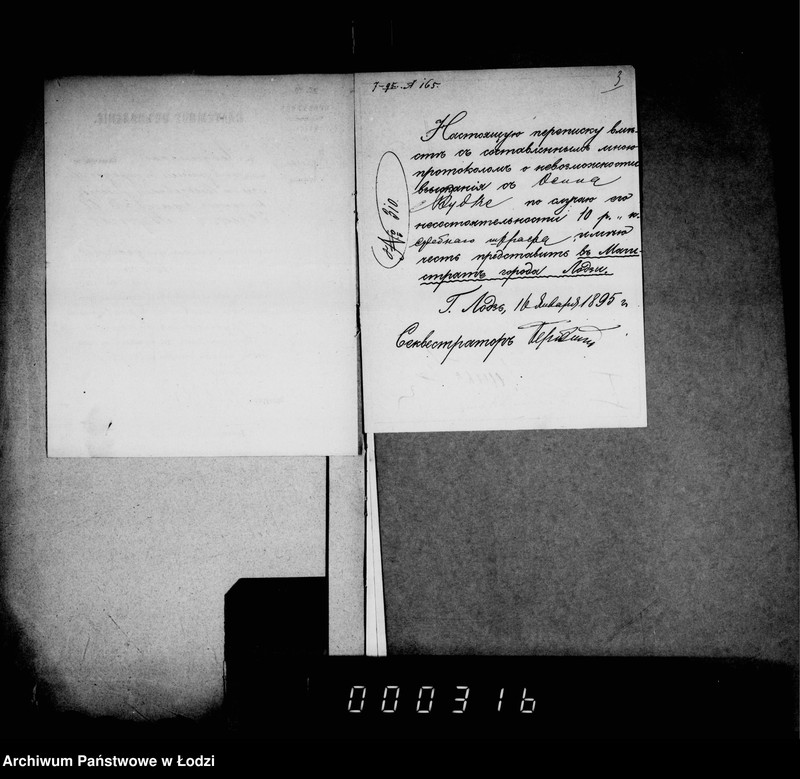 3
№ 310.
Настоящую переписку вмѣ-
стѣ съ составленнымъ мною
протоколомъ о невозможности
взысканія съ Осипа
по случаю его
несостоятельности 10 р. „ к.
судебнаго штрафа, имѣю
честь представить въ Маги-
стратъ города Лодзи.
Г. Лодзь, 16 Января 1895 г.
Секвестраторъ
000316
Archiwum Państwowe w Łodzi